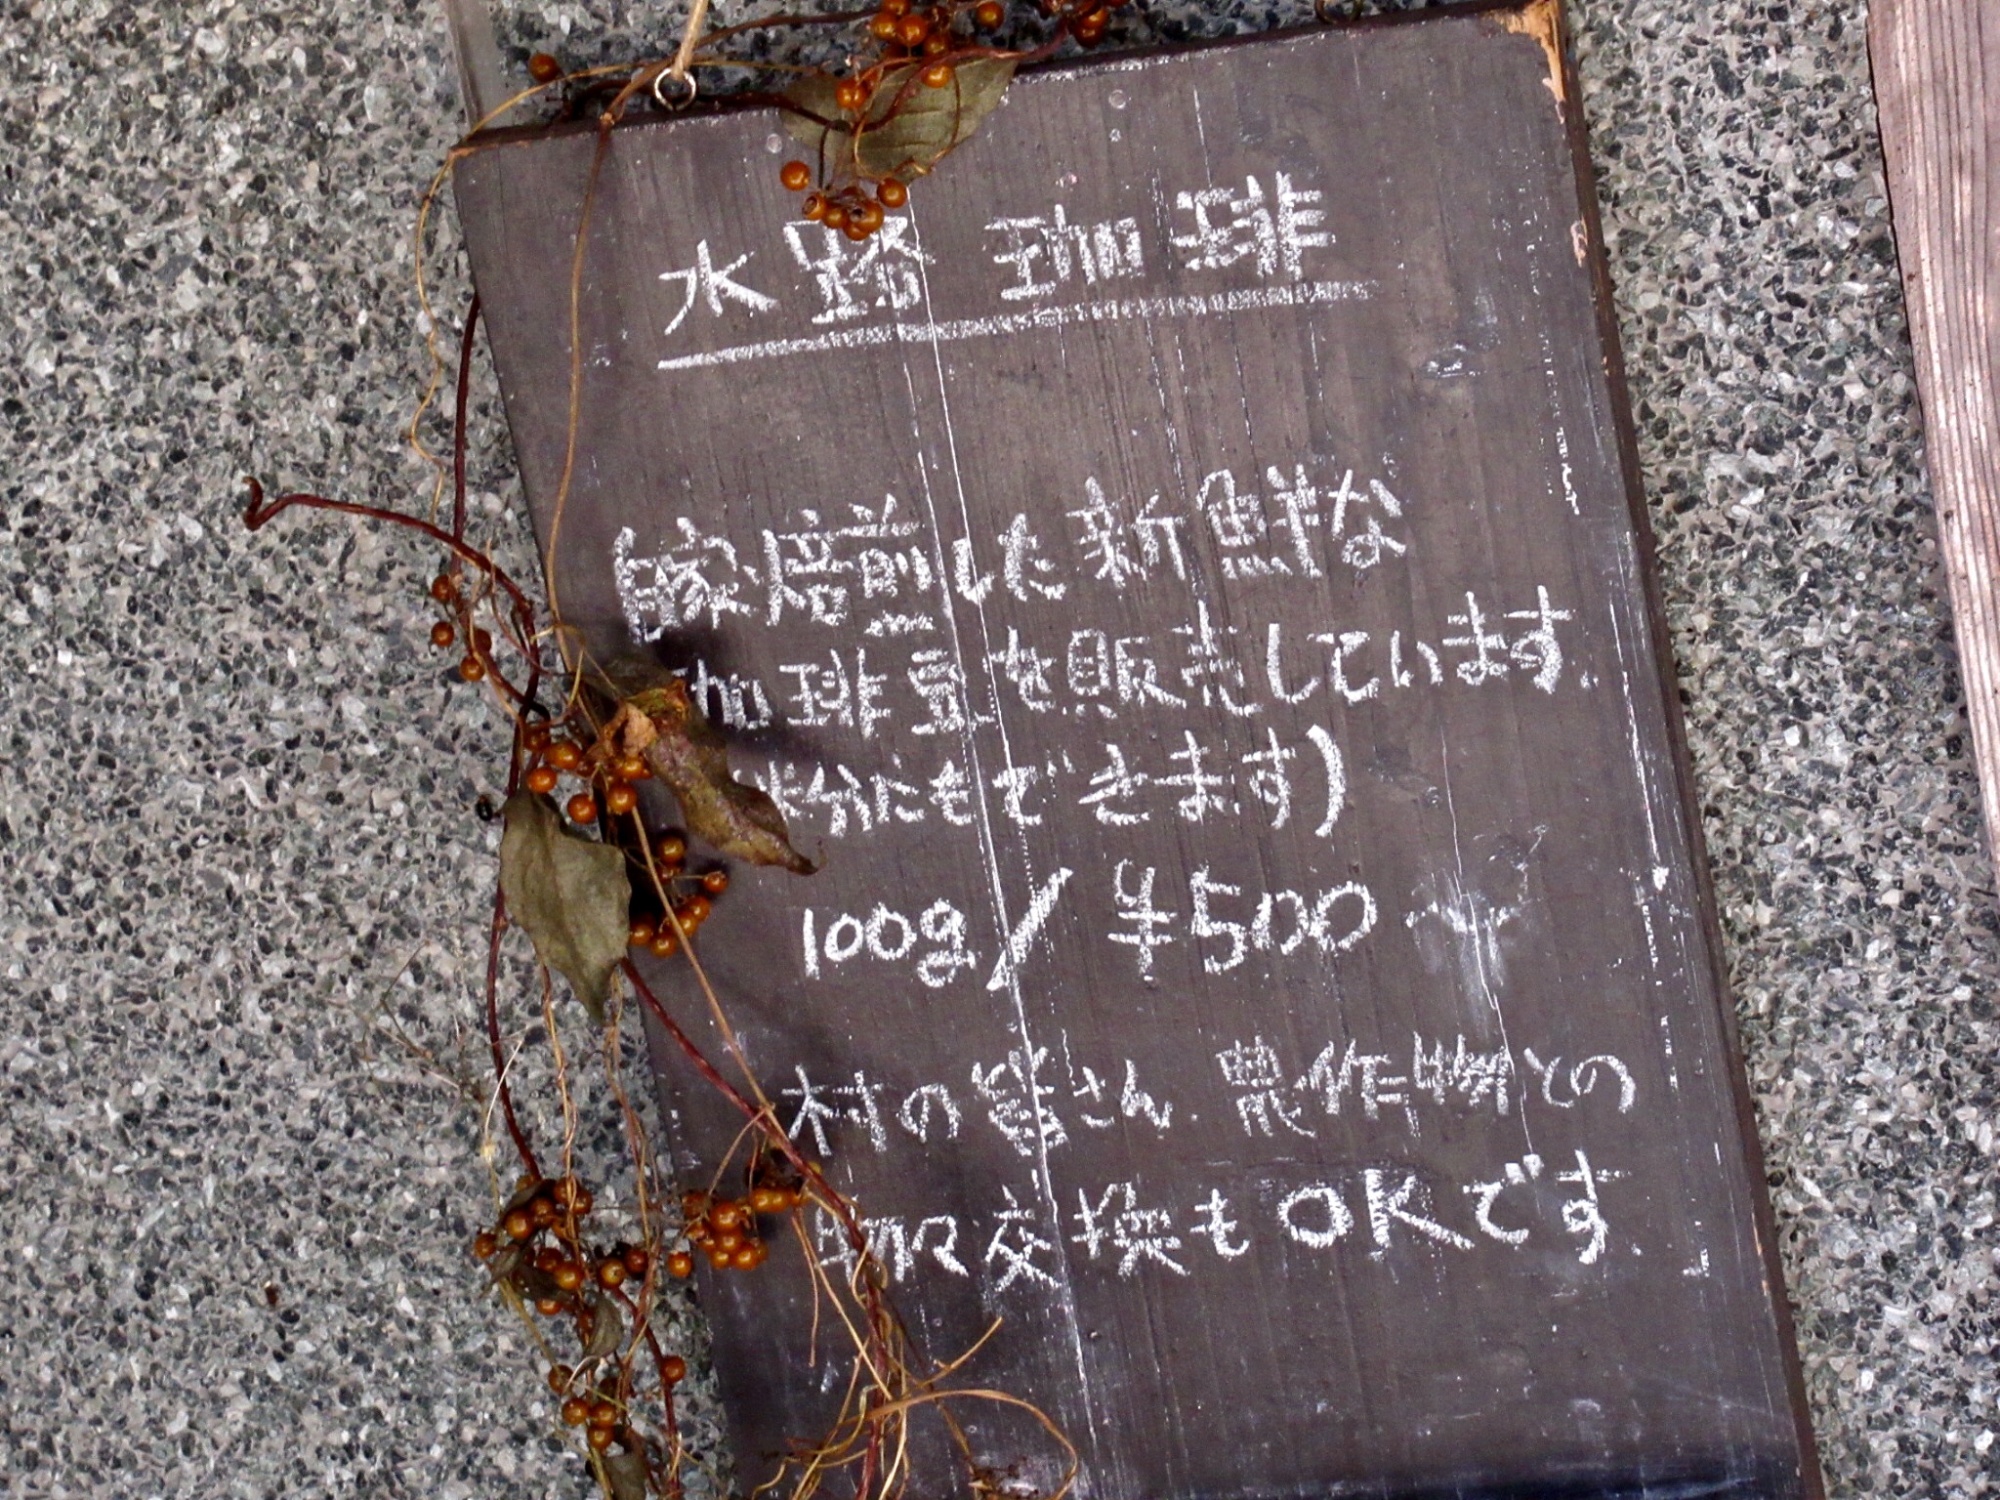 水路 珈琲
自家焙煎した新鮮な
珈琲豆を販売しています.
粉にもできます)
100g/¥500
村の皆さん. 農作物との
物々交換もOKです.